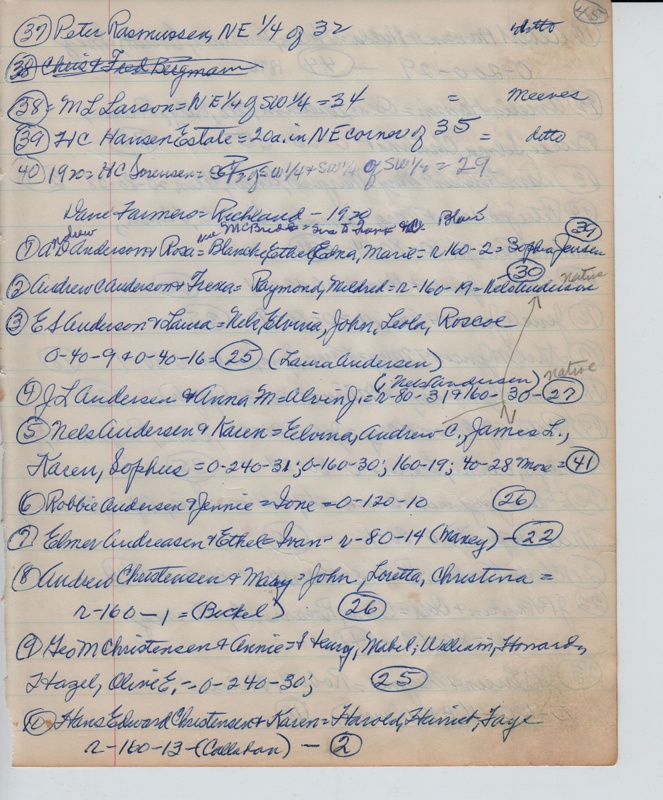 45
(37) Peter Rasmussen, NE 1/4 of 32 ditto
38 Chris & Fred Bergmann
(38) = ML Larson = NE 1/4 of SW 1/4 = 34 = Meeves
(39) HC Hansen Estate = 20a. in NE corner of 35 = ditto
(40) 1920 = HC Sorensen = SW 1/4 & SW 1/4 of SW 1/4 = 29
Dane Farmers = Richland - 1920
drew nee McBride = Blair
(1) A D Anderson & Rosa = Blanche, Ethel, Edna, Marie = r-160-2 = Sophia Jensen (31)
(30) native
(2) Andrew C Anderson & Trena = Raymond, Mildred = r-160-19 = Nels Anderson
(3) E S Anderson & Laura = Nels, Elvina, John, Leola, Roscoe
0-40-9 & 0-40-16 = (25) (Laura Andersen)
(Nels Andersen) native
(4) J L Andersen & Anna M = Alvin J. = r-80-31 & 160-30 - (27)
N
(5) Nels Andersen & Karen = Elvina, Andrew C., James L.,
Karen, Sophus = 0-240-31; 0-160-30; 160-19; 40-28 more = (41)
(6) Robbie Andersen & Jennie = Ione = 0-120-10 (26)
(7) Elmer Andreasen & Ethel = Ivan - r-80-14 (Maxey) - (22)
(8) Andrew Christensen & Mary = John, Loretta, Christina =
r-160-1 = (Beckel) (26)
(9) Geo M Christensen & Annie = Henry, Mabel, William, Howard,
Hazel, Olivi E. = 0-240-30; (25)
(10) Hans Edward Christensen & Karen = Harold, Harriet, Faye
r-160-13 - (Callahan) - (2)